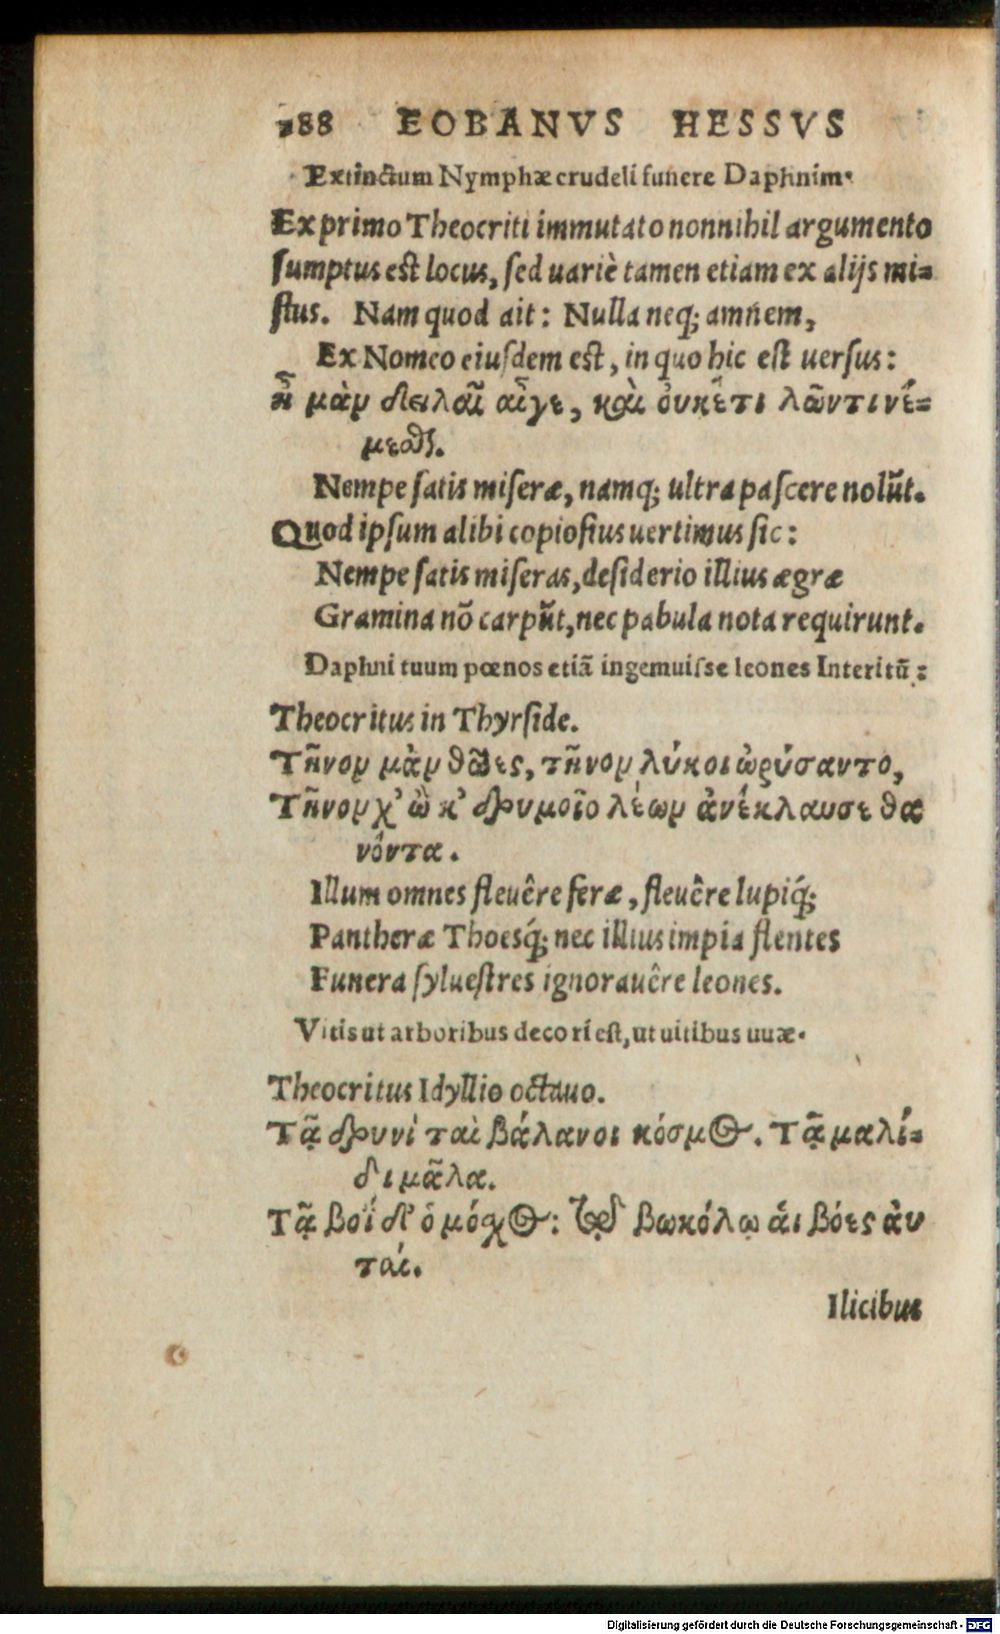 288 EOBANVS HESSVS
Extinctum Nymphæ crudeli funere Daphnim.
Ex primo Theocriti immutato nonnihil argumento
sumptus est locus, sed uariè tamen etiam ex alijs mi-
stus. Nam quod ait: Nulla neq; amnem,
Ex Nomeo eiusdem est, in quo hic est uersus:
ἦ μὰν δειλαῖ αἶγε, καὶ ὀυκέτι λῶντι νέ-
μεσθ.
Nempe satis miseræ, namq; ultra pascere nolũt.
Quod ipsum alibi copiosius uertimus sic:
Nempe satis miseras, desiderio illius ægræ
Gramina nõ carpũt, nec pabula nota requirunt.
Daphni tuum pœnos etiã ingemuisse leones Interitũ:
Theocritus in Thyrside.
Τῆνον μὰν θῶες, τῆνον λύκοι ὠρύσαντο,
Τῆνον χ' ὢ κ' δρυμοῖο λέων ἀνέκλαυσε θα
νόντα.
Illum omnes fleuêre feræ, fleuêre lupiq́;
Pantheræ Thoesq́; nec illius impia flentes
Funera syluestres ignorauêre leones.
Vitis ut arboribus decori est, ut uitibus uuæ.
Theocritus Idyllio octauo.
Τᾷ δρυνὶ ταὶ βάλανοι κόσμος. Τᾷ μαλί-
δι μᾶλα.
Τᾷ βοΐ δ' ὁ μόχος: τῷ δ βωκόλῳ ἁι βόες ἀυ
ταί.
Ilicibus
Digitalisierung gefördert durch die Deutsche Forschungsgemeinschaft - DFG